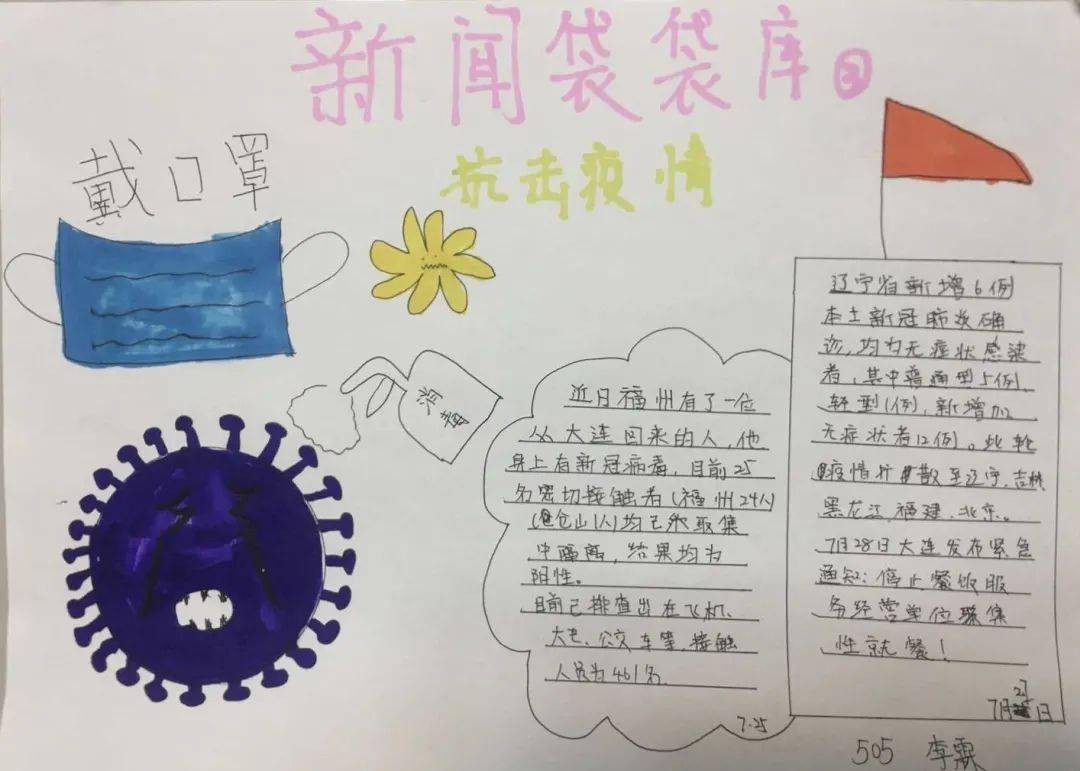 新闻袋袋库③
抗击疫情
戴口罩
消毒
近日福州有了一位
从大连回来的人,他
身上有新冠病毒,目前25
名密切接触者(福州24人
仓山1人)均已采取集
中隔离,结果均为
阴性。
目前已排查出在飞机、
大巴、公交车等,接触
人员为461名
7.25
辽宁省新增6例
本土新冠肺炎确
诊,均为无症状感染
者,其中普通型5例,
轻型1例,新增加
无症状者12例。此轮
疫情扩散至辽宁、吉林
黑龙江、福建、北京。
7月28日大连发布紧急
通知:停止餐饮服
务经营单位聚集
性就餐!
7月27日
505 李霖